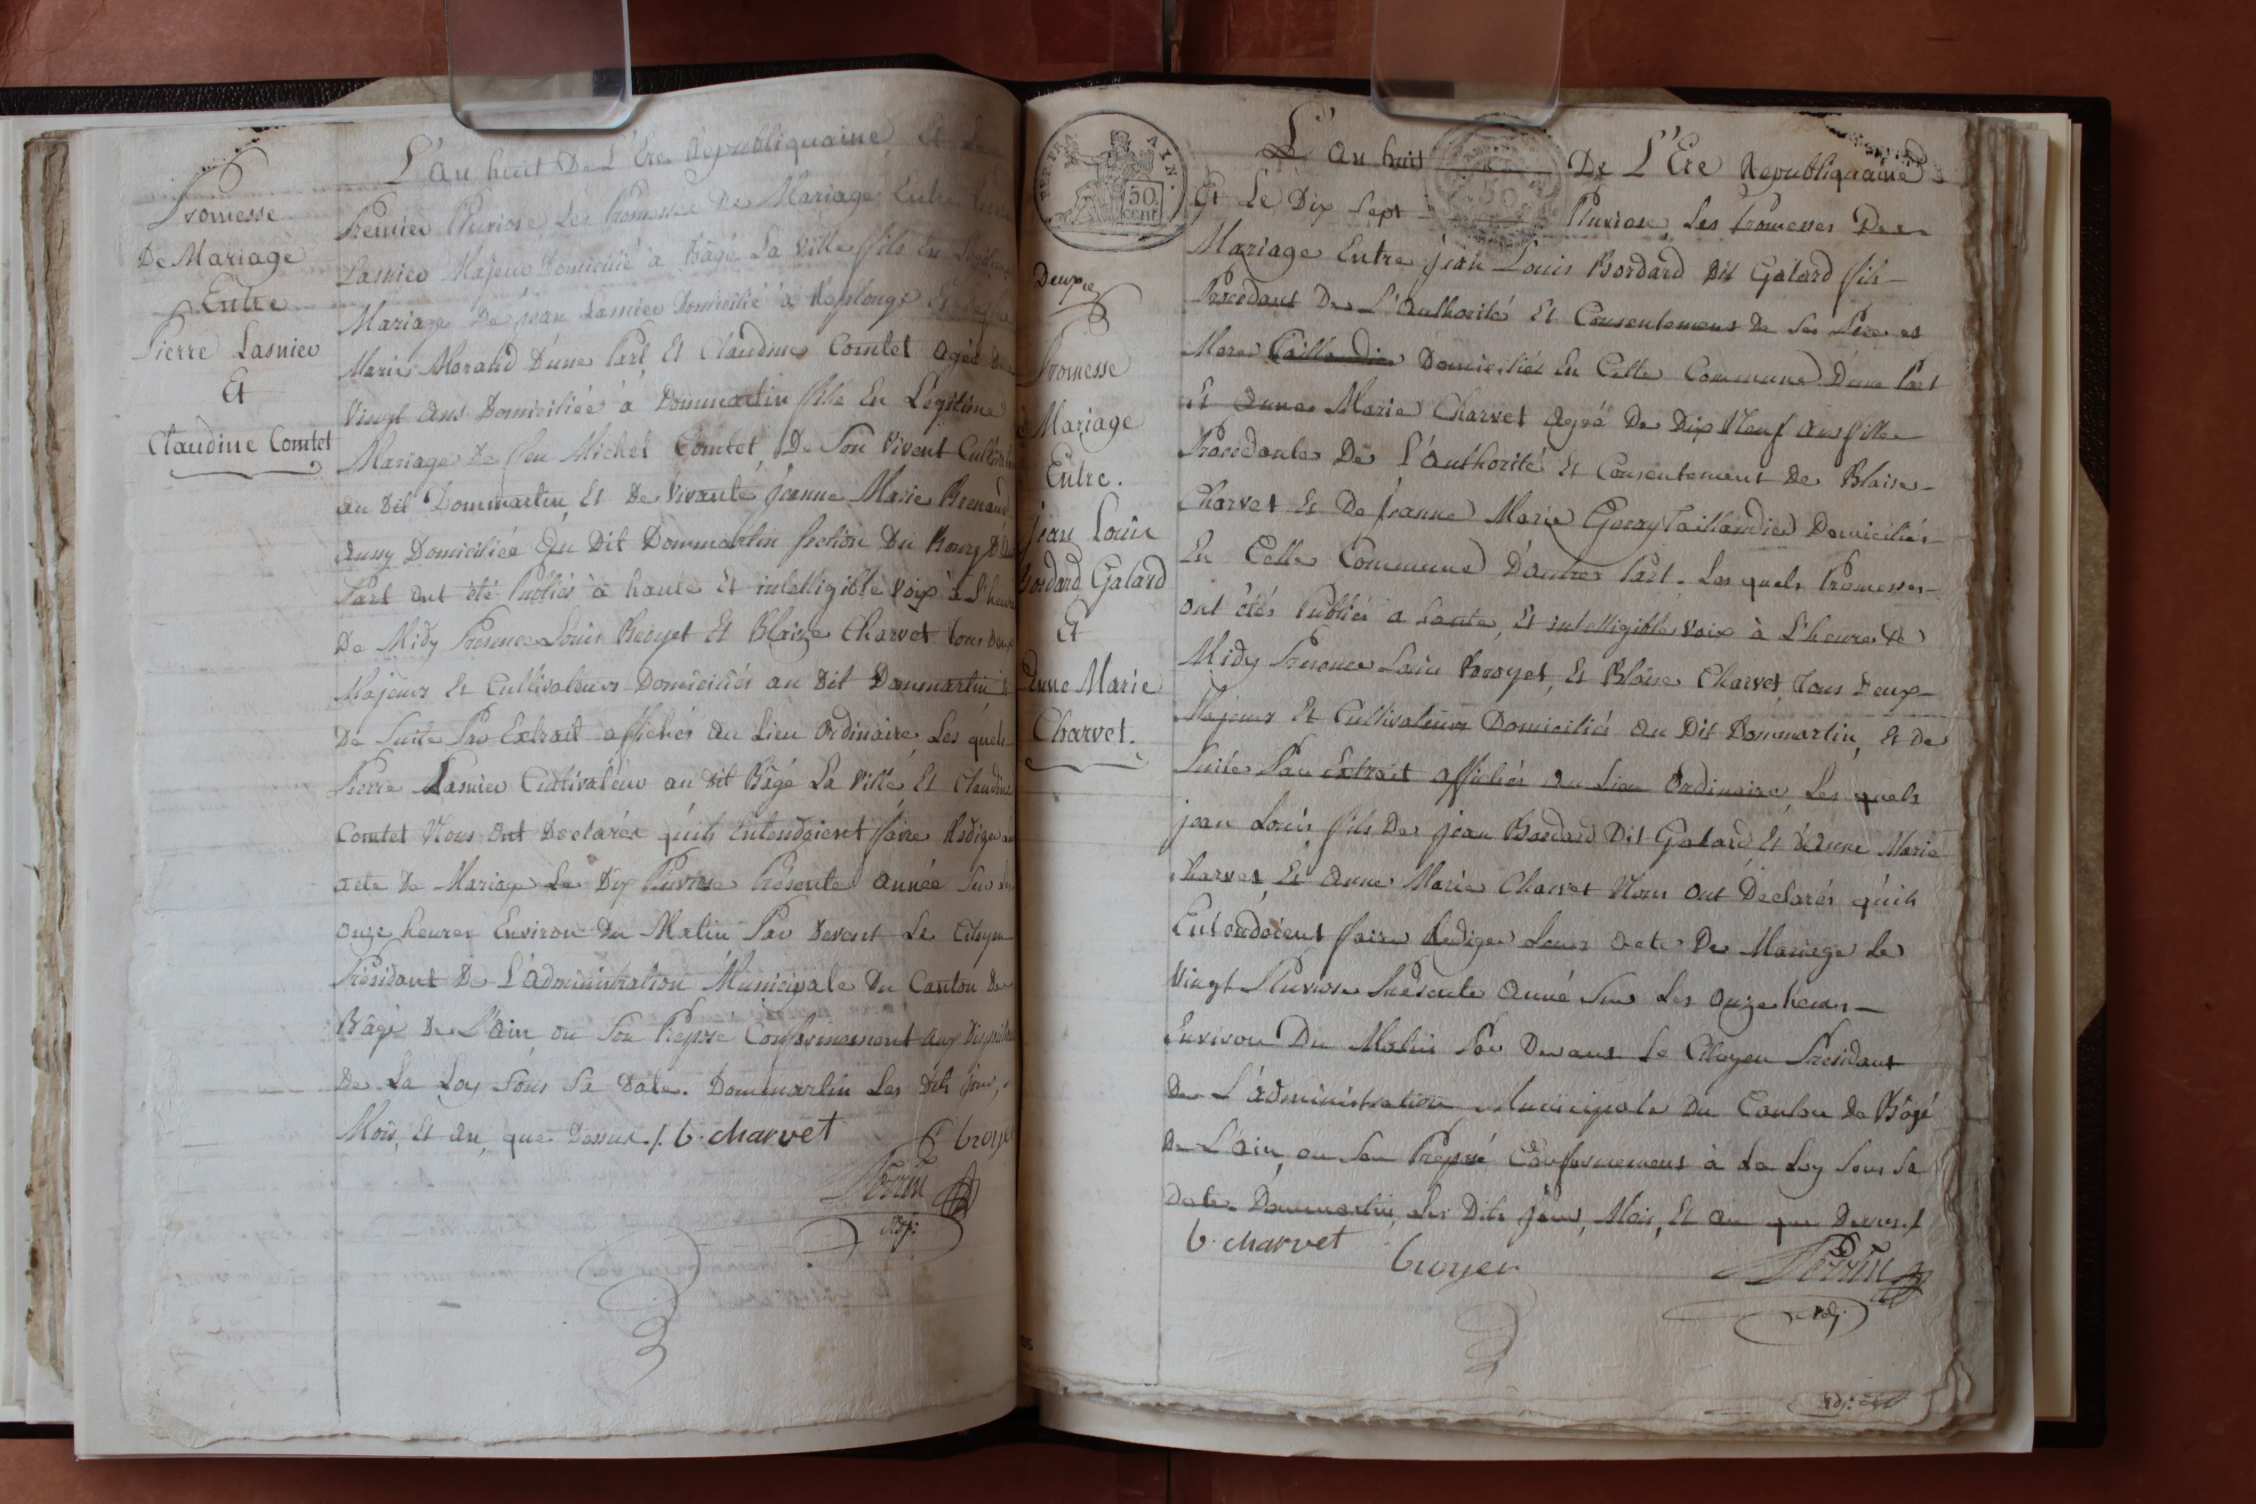 Promesse
De Mariage
Entre
Pierre Lasnier
Et
Claudine Comtet
L'an huit De L'Ere Republiquaine, Et Le
Premier Pluviose Les Promesse De Mariage Entre
Lasnier Majeur Domicilié à Bâgé La Ville fils En
Mariage De jean Lasnier Domicilié à Replonge Et De
Marie Morand D'une Part, Et Claudine Comtet agée De
Vingt ans Domiciliée à Dommartin fille En Légitime
Mariage De feu Michel Comtet, De Son Vivent
au dit Dommartin, Et De Vivante, jeanne Marie
Domiciliée Au Dit Dommartin Section Du Bourg
Part ont été Publiés à haute Et intelligible Voix à L'heure
De Midy Presence Louis Broyet Et Blaize Charvet tous deux
Majeurs Et Cultivateurs Domiciliés au dit Dommartin
De Suite Par Extrait affichés au Lieu Ordinaire, Les quels
Pierre Lasnier Cultivateur au dit Bâgé La Ville Et Claudine
Comtet Nous Ont Declarés quils Entendoient faire Rediger
acte De Mariage Le Dix Pluviose Présente année Sur les
Onze heures Environ du Matin Par Devent Le Citoyen
Présidant De L'administration Municipale du Canton De
Bâgé De L'ain, ou Son Preposé Conformement aux
De La Loy Sous Sa Date. Dommartin Les Dits jour,
Mois, Et an, que Dessus ./. b. charvet
broyer
Perrin
adj.
AIN.
50
cent
L'an huit De L'Ere Republiquaine
Et Le Dix Sept Pluviose, Les Promesses De
Mariage Entre jean Louis Bordard dit Galard fils
Procedant De L'authorité Et Consentement De Ses Pere et
Mere Domiciliés En Cette Commune D'une Part
Et Anne Marie Charvet agée De Dix Neuf ans fille
Procédante De L'authorité Et Consentement De Blaise
Charvet Et De jeanne Marie Taillandier Domiciliés
En Cette Commune D'autre Part. Les quels Promesses
ont étés Publiés a haute, Et intelligible voix à L'heure de
Midy Presence Louis Broyet, Et Blaise Charvet, Tous Deux
Majeurs Et Cultivateurs Domiciliés au Dit Dommartin, Et De
Suite Par Extrait affichés au Lieu Ordinaire, Les quels
jean Louis fils De jean Bordard Dit Galard Et d'Anne Marie
Charvet, Et Anne Marie Charvet Nous ont Declarés quils
Entendoient faire Rediger Leurs acte De Mariage Le
Vingt Pluviose Présente anné Sur Les Onze heures
Environ Du Matin Par Devant Le Citoyen Présidant
De L'administration Municipale Du Canton De Bâgé
De L'ain, ou Son Preposé Conformement à La Loy Sous Sa
Date. Dommartin, Les Dits jour, Mois, Et an que Dessus ./
b. charvet
broyer
Perrin
adj.
Deuxe
Promesse
Mariage
Entre.
jean Louis
Bordard Galard
Et
Anne Marie
Charvet.